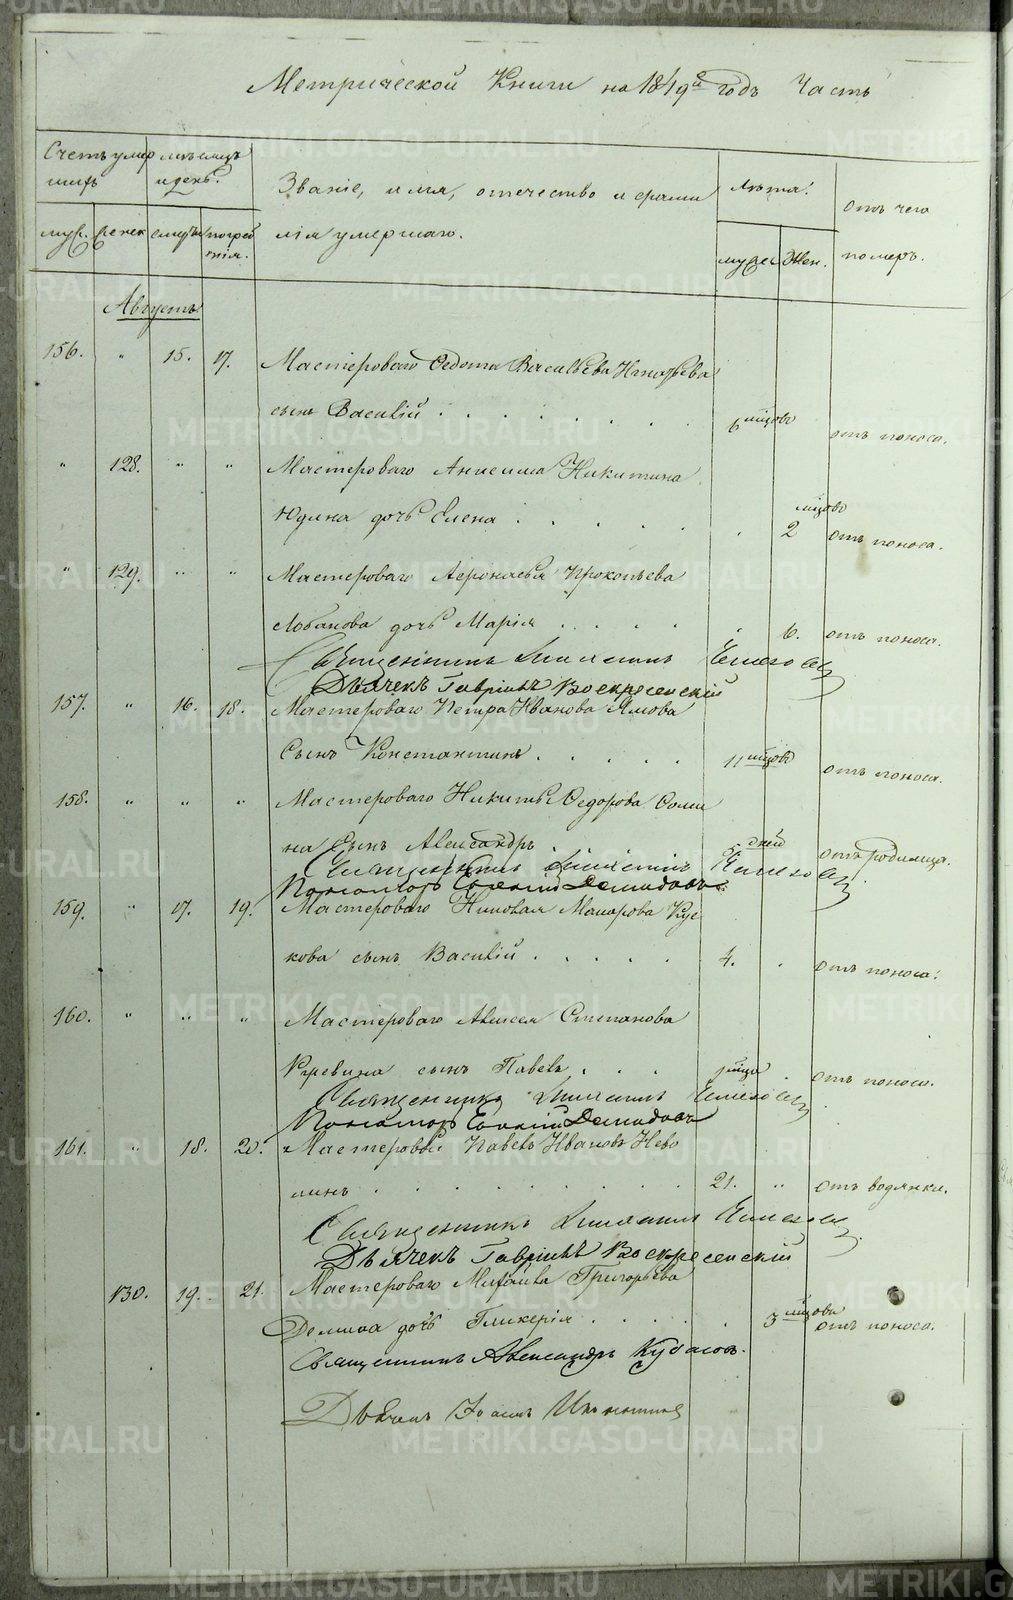 Метрической Книги на 1849й годъ Часть
Счетъ умершихъ
мѣсяцъ и день.
Званіе, имя, отечество и фамилія умершаго.
лѣта.
отъ чего померъ.
муж. женск смерти погребенія.
мужс Жен.
Августъ
156. " 15. 17. Мастероваго Федота Васильева Игнатьева
сынъ Василій . . . . . . . 6 мѣсцовъ отъ поноса.
" 128. " " Мастероваго Анисима Никитина
Юдина дочь Елена . . . . . 2 мѣсцовъ отъ поноса.
" 129. " " Мастероваго Аѳонасья Прокопьева
Лобанова дочь Марія . . . . . 6. отъ поноса.
Священникъ
Дьячекъ Гавріилъ Воскресенскій
157. " 16. 18. Мастероваго Петра Иванова
Сынъ Константинъ . . . . . 11 мѣсцовъ отъ поноса.
158. " " " Мастероваго Никиты Федорова Соми
на Сынъ Александръ . дней отъ родимца.
Священникъ
Пономарь Евгеній Демидовъ
159. " 17. 19. Мастероваго Николая Макарова Кус
кова сынъ Василій . . . . . 4. . отъ поноса.
160. " " " Мастероваго Алексея Степанова
сынъ Павелъ . . . 1 мѣсца . отъ поноса.
Священникъ
Пономарь Евгеній Демидовъ
161. " 18. 20. Мастеровый Павелъ Ивановъ Нево
линъ . . . . . . . . . 21. " отъ водянки.
Священникъ
Дьячекъ Гавріилъ Воскресенскій
130. 19. 21. Мастероваго Михайла Григорьева
Демина дочь Гликерія . . . . . 3 мѣсцовъ отъ поноса.
Священникъ Александръ Кубасовъ.
Дьячекъ
METRIKI.GASO-URAL.RU